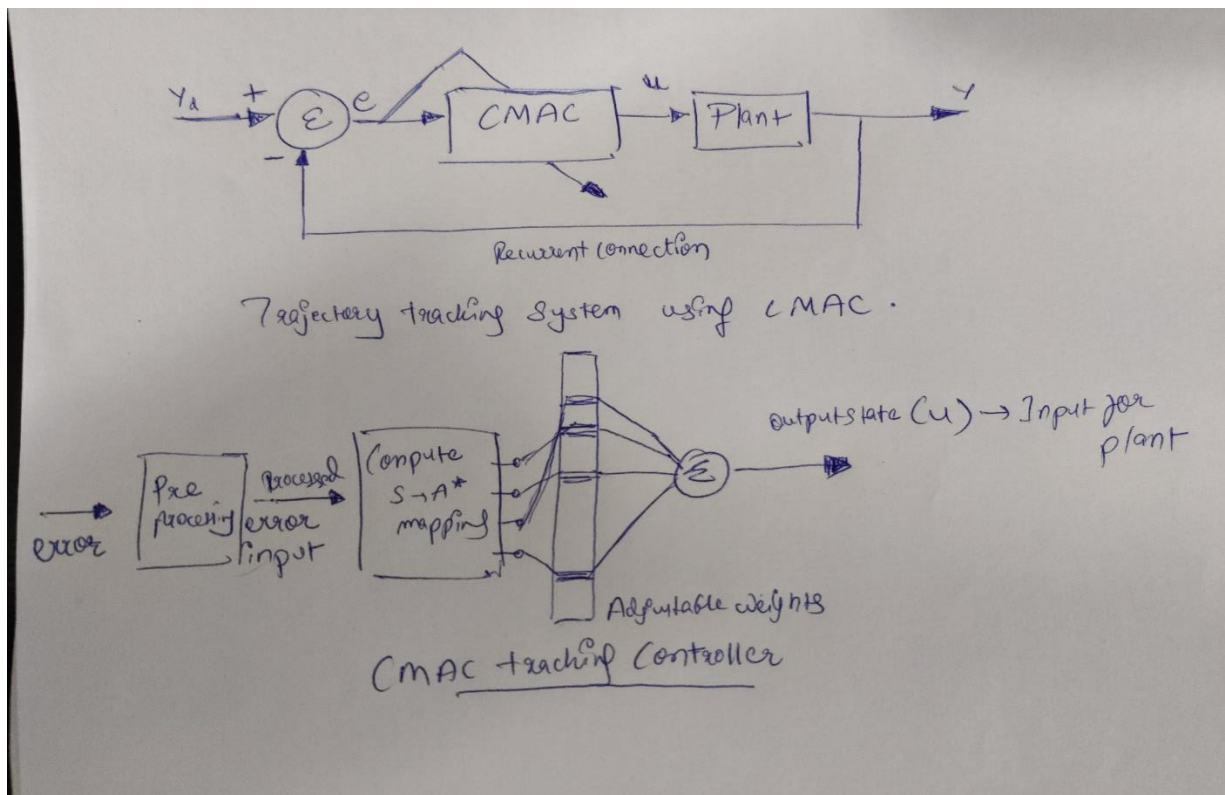 Yd + Σ e CMAC u Plant Y
-
Recurrent connection
Trajectory tracking System using CMAC.
error
Pre
processing
Processed
error
input
Compute
S→A*
mapping
Σ
output state (u) → Input for
plant
Adjustable weights
CMAC tracking Controller